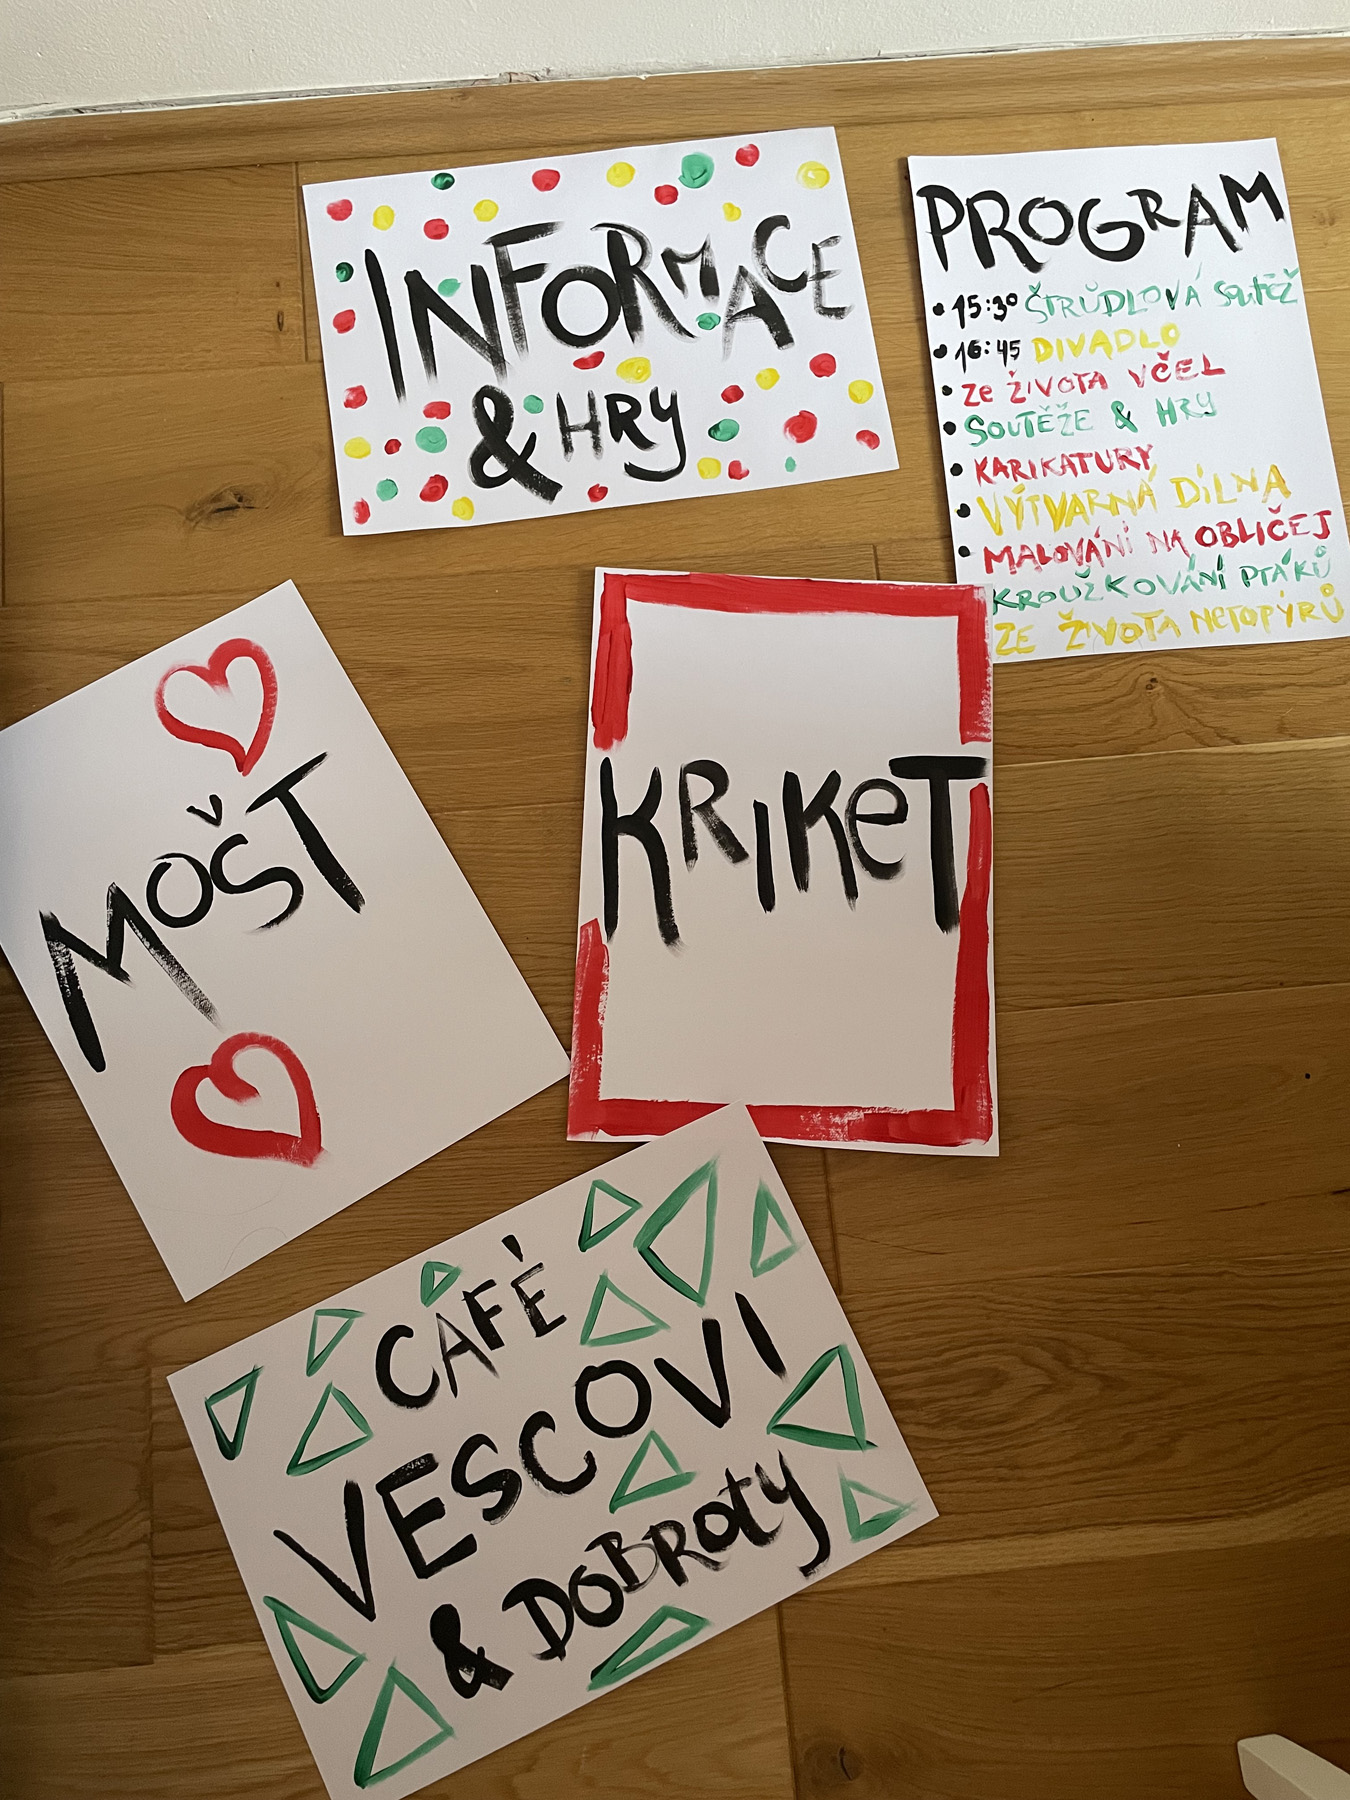 INFORMACE
& HRY
PROGRAM
• 15:30 ŠTRŮDLOVÁ SOUTĚŽ
• 16:45 DIVADLO
• ZE ŽIVOTA VČEL
• SOUTĚŽE & HRY
• KARIKATURY
• VÝTVARNÁ DÍLNA
• MALOVÁNÍ NA OBLIČEJ
KROUŽKOVÁNÍ PTÁKŮ
ZE ŽIVOTA NETOPÝRŮ
MOŠT
KRIKET
CAFÉ
VESCOVI
& DOBROTY